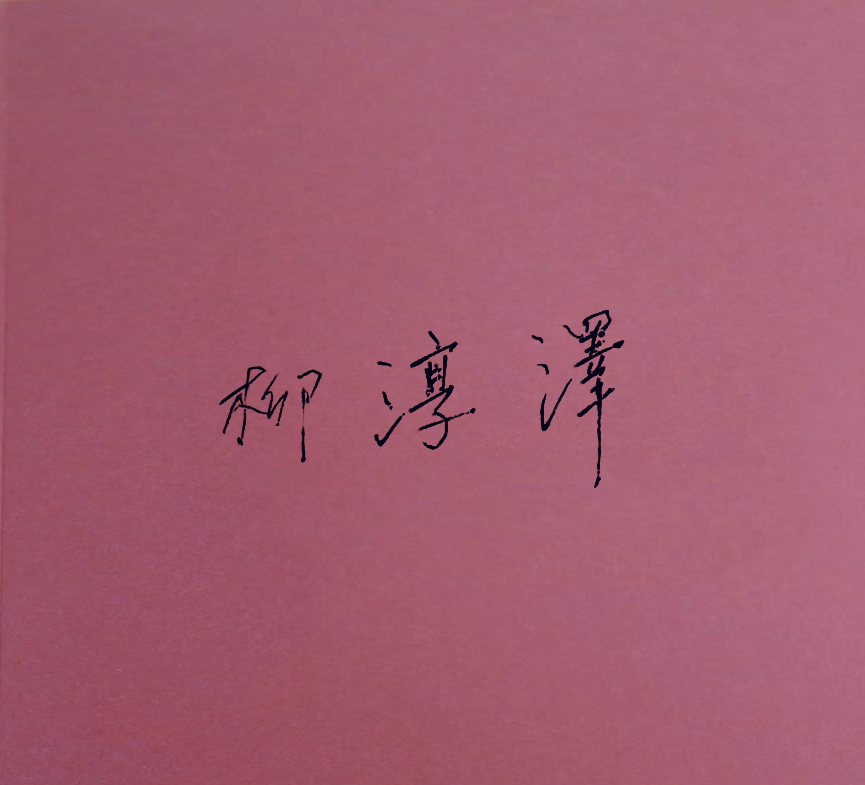 柳淳澤